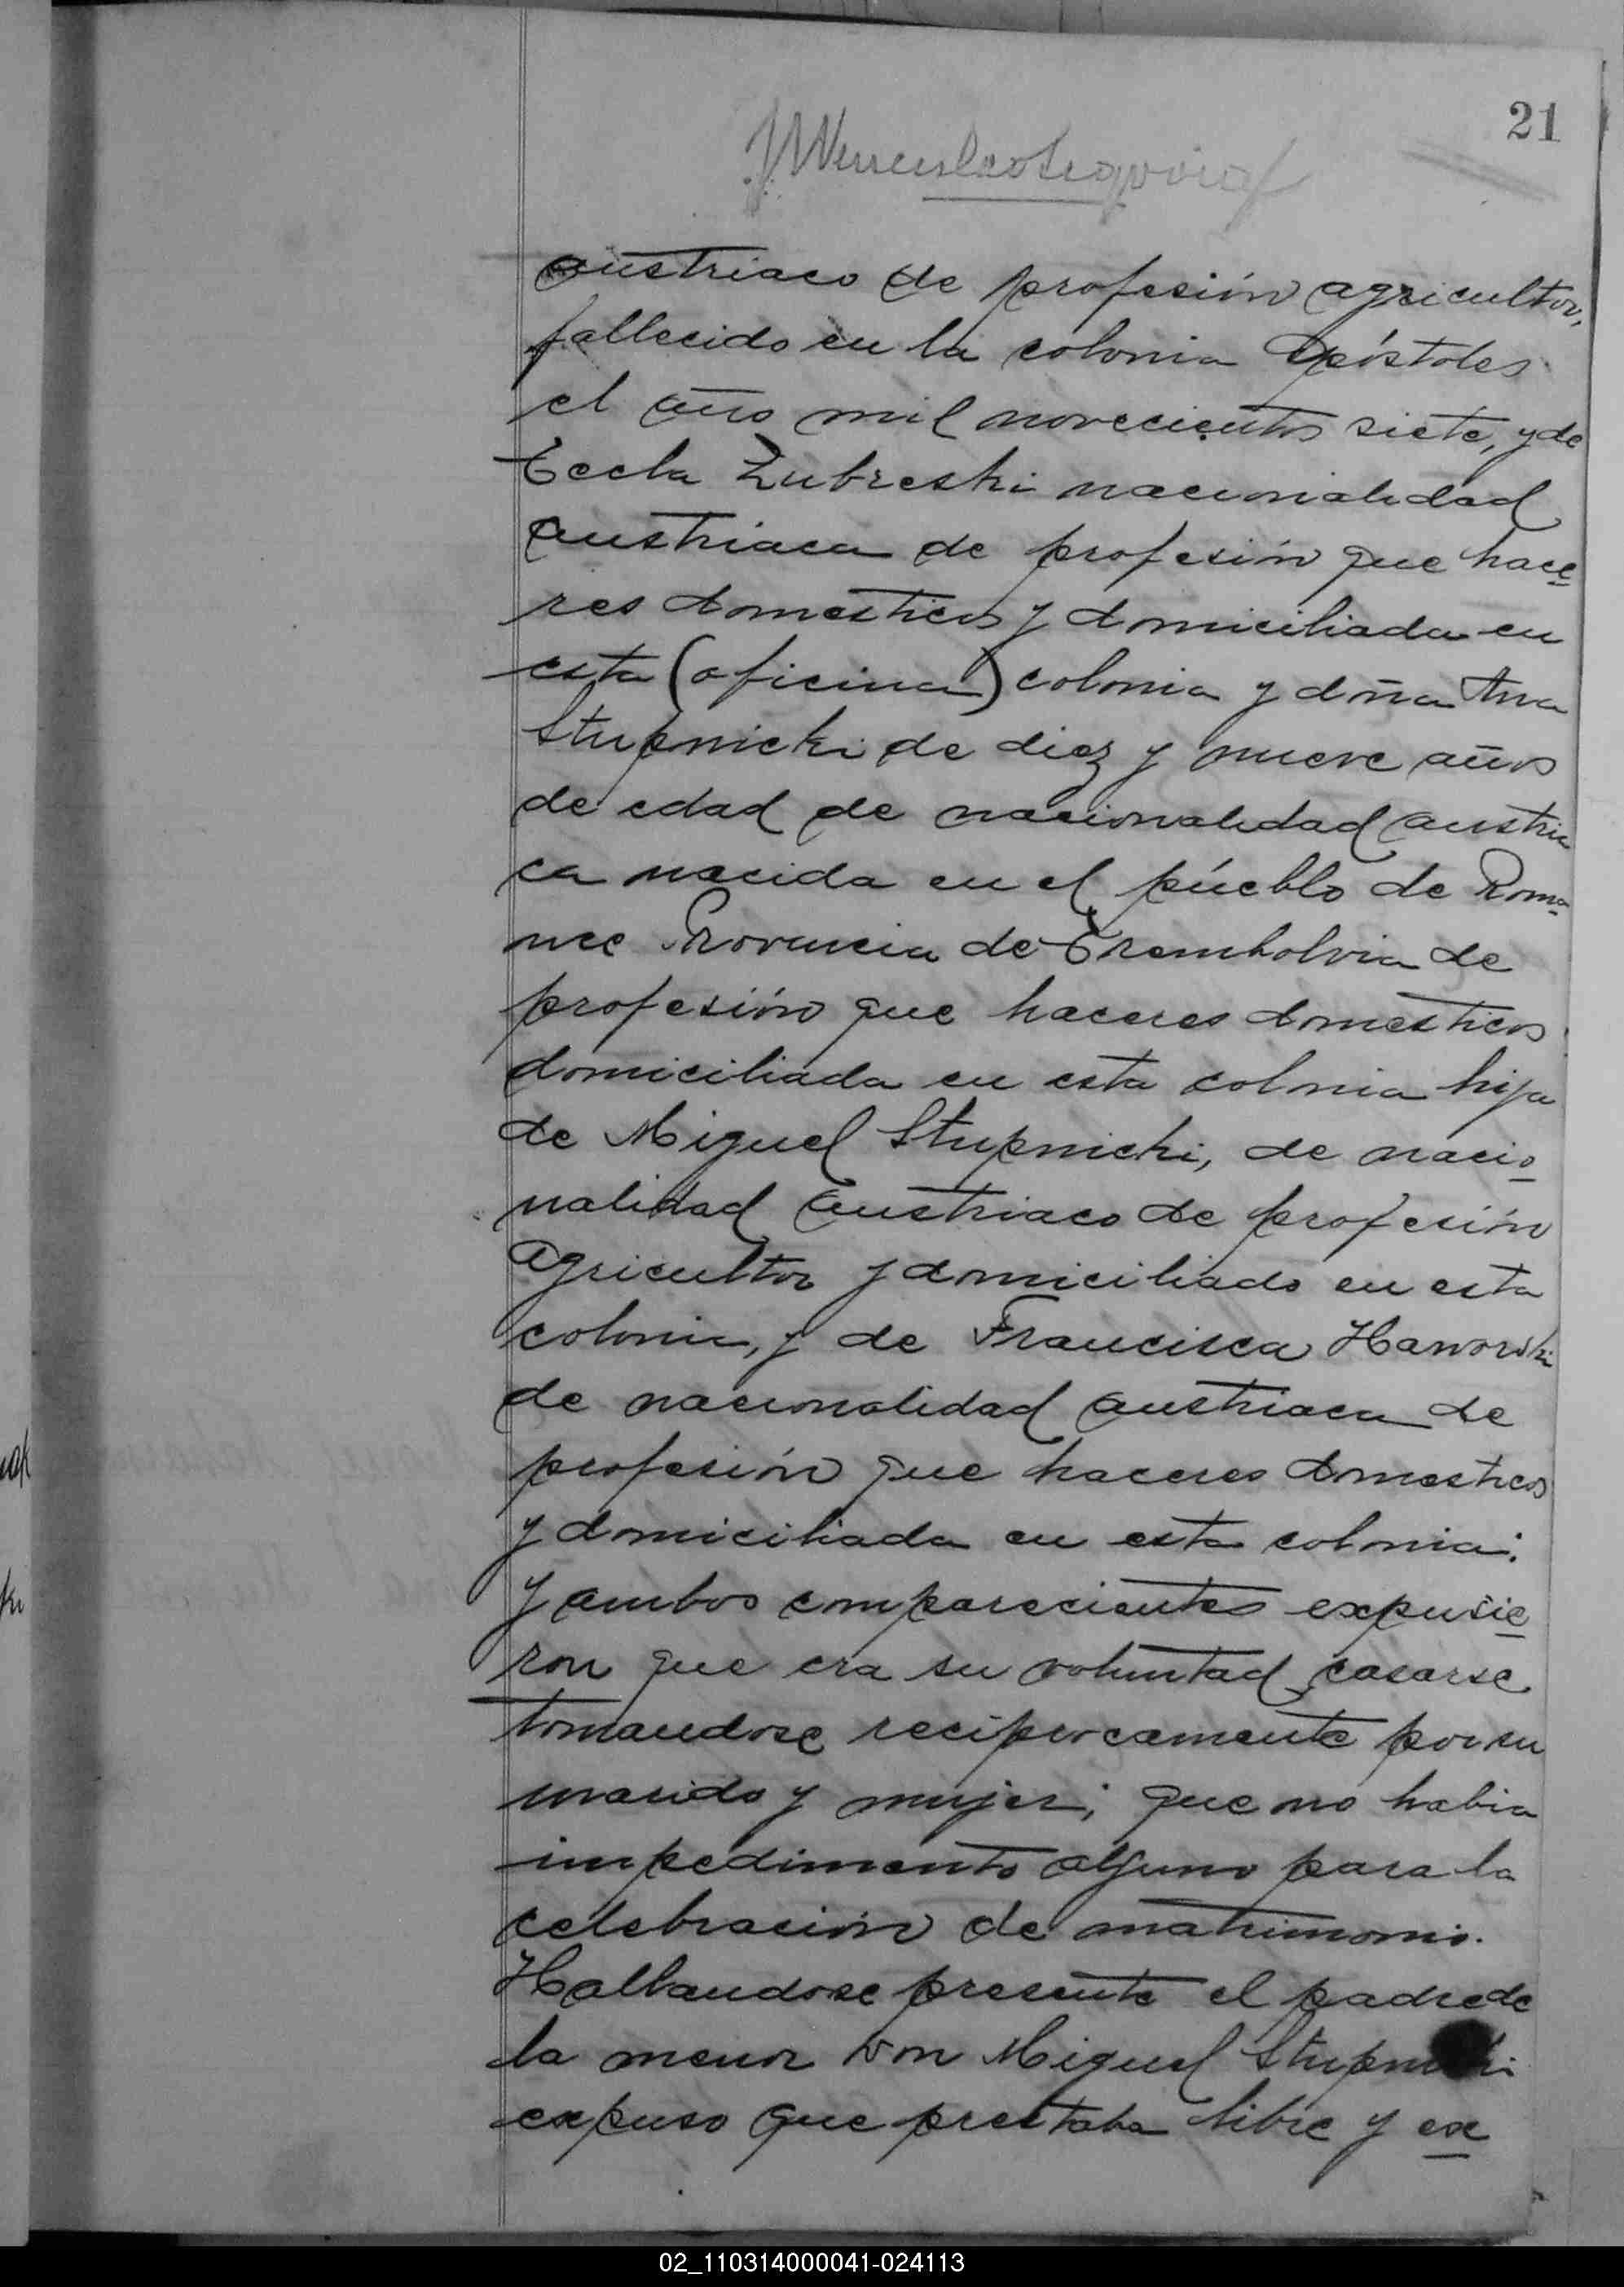 21
austriaco de profesión agricultor,
fallecido en la colonia Apóstoles
el año mil novecientos siete, y de
Tecla Zubreski nacionalidad
austriaca de profesión que hace
res domesticos y domiciliada en
esta (oficina) colonia y doña Ana
Stupnicki de diez y nueve años
de edad de nacionalidad austria
ca nacida en el pueblo de Roma
nee Provincia de Trembolvia de
profesión que haceres domesticos
domiciliada en esta colonia hija
de Miguel Stupnicki, de nacio
nalidad austriaco de profesión
agricultor y domiciliado en esta
colonia, y de Francisca Haworski
de nacionalidad austriaca de
profesión que haceres domesticos
y domiciliada en esta colonia:
Y ambos comparecientes expusie
ron que era su voluntad casarse
tomandose recíprocamente por su
marido y mujer; que no habia
impedimento alguno para la
celebración de matrimonio.
Hallandose presente el padre de
la menor don Miguel Stupnicki
expuso que prestaba libre y ex
02_110314000041-024113